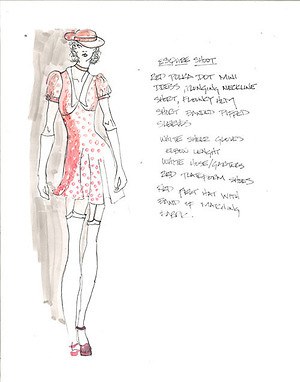 ESQUIRE SHOOT
RED POLKA DOT MINI
DRESS, PLUNGING NECKLINE
SHORT, FLOUNCY HEM
SHORT BANDED PUFFED
SLEEVES
WHITE SHEER GLOVES
ELBOW LENGHT
WHITE HOSE/GARTERS
RED PLATFORM SHOES
RED FELT HAT WITH
BAND OF MATCHING
FABRIC.